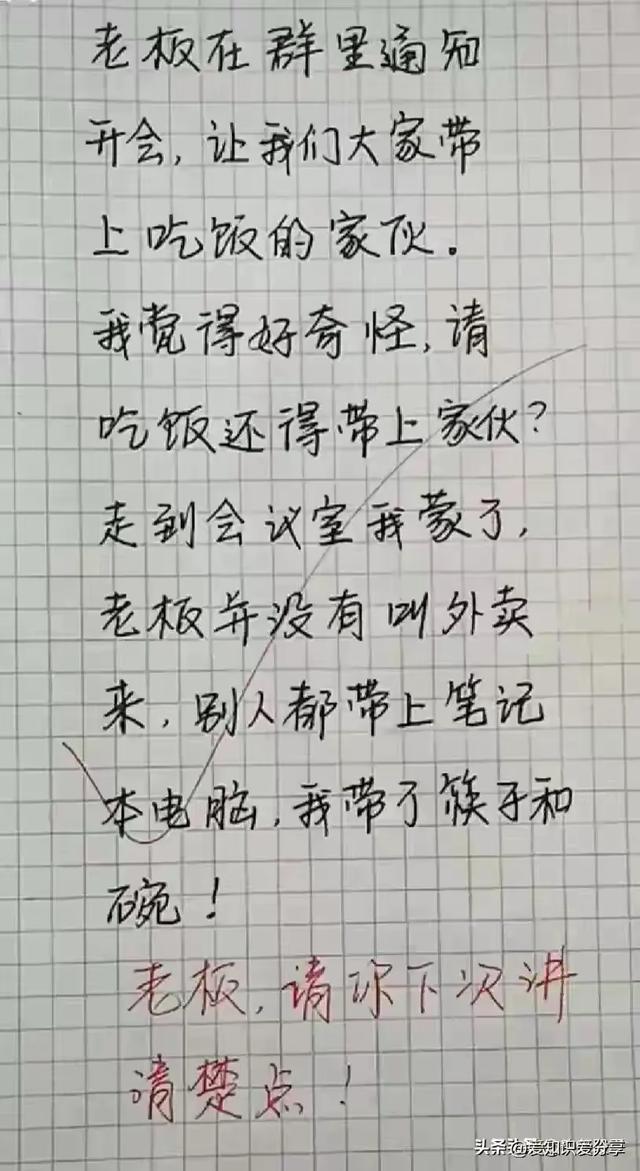 老板在群里通知
开会,让我们大家带
上吃饭的家伙。
我觉得好奇怪,请
吃饭还得带上家伙?
走到会议室我蒙了,
老板并没有叫外卖
来,别人都带上笔记
本电脑,我带了筷子和
碗!
老板,请你下次讲
清楚点!
头条@爱知识爱分享